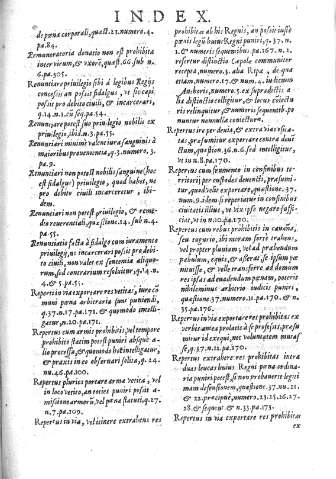 INDEX.
de pœna corporali, quæst. 23. numero. 4.
pa. 84.
Remuneratoria donatio non est prohibita
inter virum, & vxorē, quæst. 66. sub n.
6. pa. 305.
Renunciare privilegio sibi à legibus Regijs
concesso an possit fidalgus, vt sic capi
possit pro debito civili, & incarcerari,
q. 14. n. 1. cū seq. pa. 54.
Renunciare potest suo privilegio nobilis ex
privilegio, ibid. n. 3. pa. 55.
Renunciari minimè valent iura sanguinis à
maioribus provenientia, q. 3. numero. 3.
pa. 9.
Renunciari non potest nobilitas sanguine (hoc
est fidalgus) privilegio, quod habet, ne
pro debito civili incarceretur, ibi-
dem.
Renunciari non potest privilegio, & reme-
dio reverentiali, quæstione. 14. sub n. 2.
pa. 55.
Renunciatio facta à fidalgo cum iuramento
privilegij, ne incarcerari possit pro debi-
to civili, non valet ex sententia aliquorum,
sed contrarium resolvitur, q. 14. n.
4. & 5. pa. 55.
Repertus in via exportare res vetitas, iure
muni pœna arbitraria sunt puniendi,
q. 37. n. 17. pa. 171. & quomodo intelli-
gatur, n. 20. pa. 171.
Repertus cum armis prohibitis, vel tempore
prohibito statim potest puniri absque a-
lio processu, & quomodo hoc intelligatur,
& praxis in eo observari solita, q. 24.
nu. 46. pa. 100.
Repertus pluries portare arma vetita, vel
in loco vetito, an toties puniri possit a-
missione armorū, vel pœna statuti, q. 27.
n. 7. pa. 109.
Repertus in via, vel itinere extrahens res
prohibitas ab his Regnis, an possit iusta
pœnis legū huius Regni puniri, q. 37. n.
1. & numeris sequentibus pa. 167. n. 2.
refertur distinctio Capole communiter
recepta, numero. 3. alia Ripæ, de qua
etiam numero. 17. & n. 4. in locum
Authoris, numero. 5. ex supradictis a-
lia distinctio colligitur, & locus electu
ri relinquitur, & numeris sequentib. po
nuntur nonnulla conjecturæ.
Repertus ire per devia, & extra vias visita-
tas, præsumitur exportare contra devi-
ctum, quæstione 36. n. 6. sed intelligitur,
vt in n. 8. pa. 170.
Repertus cum frumento in confinibus te-
rritorij per custodes devectis, præsumi-
tur, quod velit exportare, quæstione. 37.
num. 9. idem si reperiatur in confinibus
civitatis illius, vt vix ipse negare possit
facitio, n. 10. pa. 170.
Repertus cum rebus prohibitis in cauana,
seu tugurio, ibi moram forsè trahens,
vel propter pluviam, vel ad præbendum
pabulum, equis, & asserat, se ipsum pœ-
nuisse, & velle transferre ad demum
res ipsas ad euadendum pœnam, poterit
nihilominus arbitrio iudicis puniri,
quæstione. 37. numero. 11. pa. 170. & n.
35. pa. 176.
Repertus in via exportare res prohibitas ex
verbis antea prolatis à se professis, præsu-
mitur id exequi, nec voluntatem mutas-
se, q. 37. n. 12. pa. 170.
Repertus extrahere res prohibitas intra
duas leucas huius Regni pœna ordina-
ria puniri potest, si non probaverit legiti-
mam defensionem, quæstione. 37. nu. 21.
& 22. præcipuè, numero. 23. 25. 26. 27.
28. & sequent. & n. 33. pa. 173.
Repertus in via exportare res prohibitas
ex